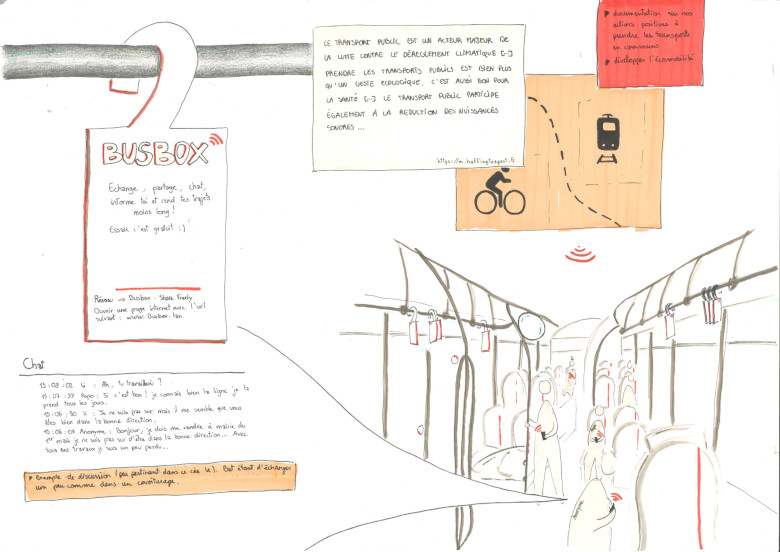 BUSBOX
Echange, partage, chat,
informe toi et rend tes trajets
moins long !
Essaie c'est gratuit :)
Réseau → Busbox - Share Freely
Ouvrir une page internet avec l'url
suivant : www.Busbox.lan
LE TRANSPORT PUBLIC EST UN ACTEUR MAJEUR DE
LA LUTTE CONTRE LE DÉRÈGLEMENT CLIMATIQUE [...]
PRENDRE LES TRANSPORTS PUBLICS EST BIEN PLUS
QU'UN GESTE ÉCOLOGIQUE, C'EST AUSSI BON POUR
LA SANTÉ [...] LE TRANSPORT PUBLIC PARTICIPE
ÉGALEMENT À LA REDUCTION DES NUISSANCES
SONORES ...
https://m.huffingtonpost.fr
documentation sur nos
actions positives à
prendre les transports
en communs
développer l'écomobilité
Chat
15:08:02 Li : Ah, tu travailles ?
15:07:39 Papo : Si c'est bon ! je connais bien la ligne je la
prend tous les jours.
15:06:50 Li : Je ne suis pas sur mais il me semble que vous
êtes bien dans la bonne direction.
15:06:07 Anonyme : Bonjour, je dois me rendre à mairie du
1er mais je ne suis pas sur d'être dans la bonne direction... Avec
tous ces travaux je suis un peu perdu...
Exemple de discussion (peu pertinent dans ce cas là). But étant d'échanger
un peu comme dans un covoiturage.